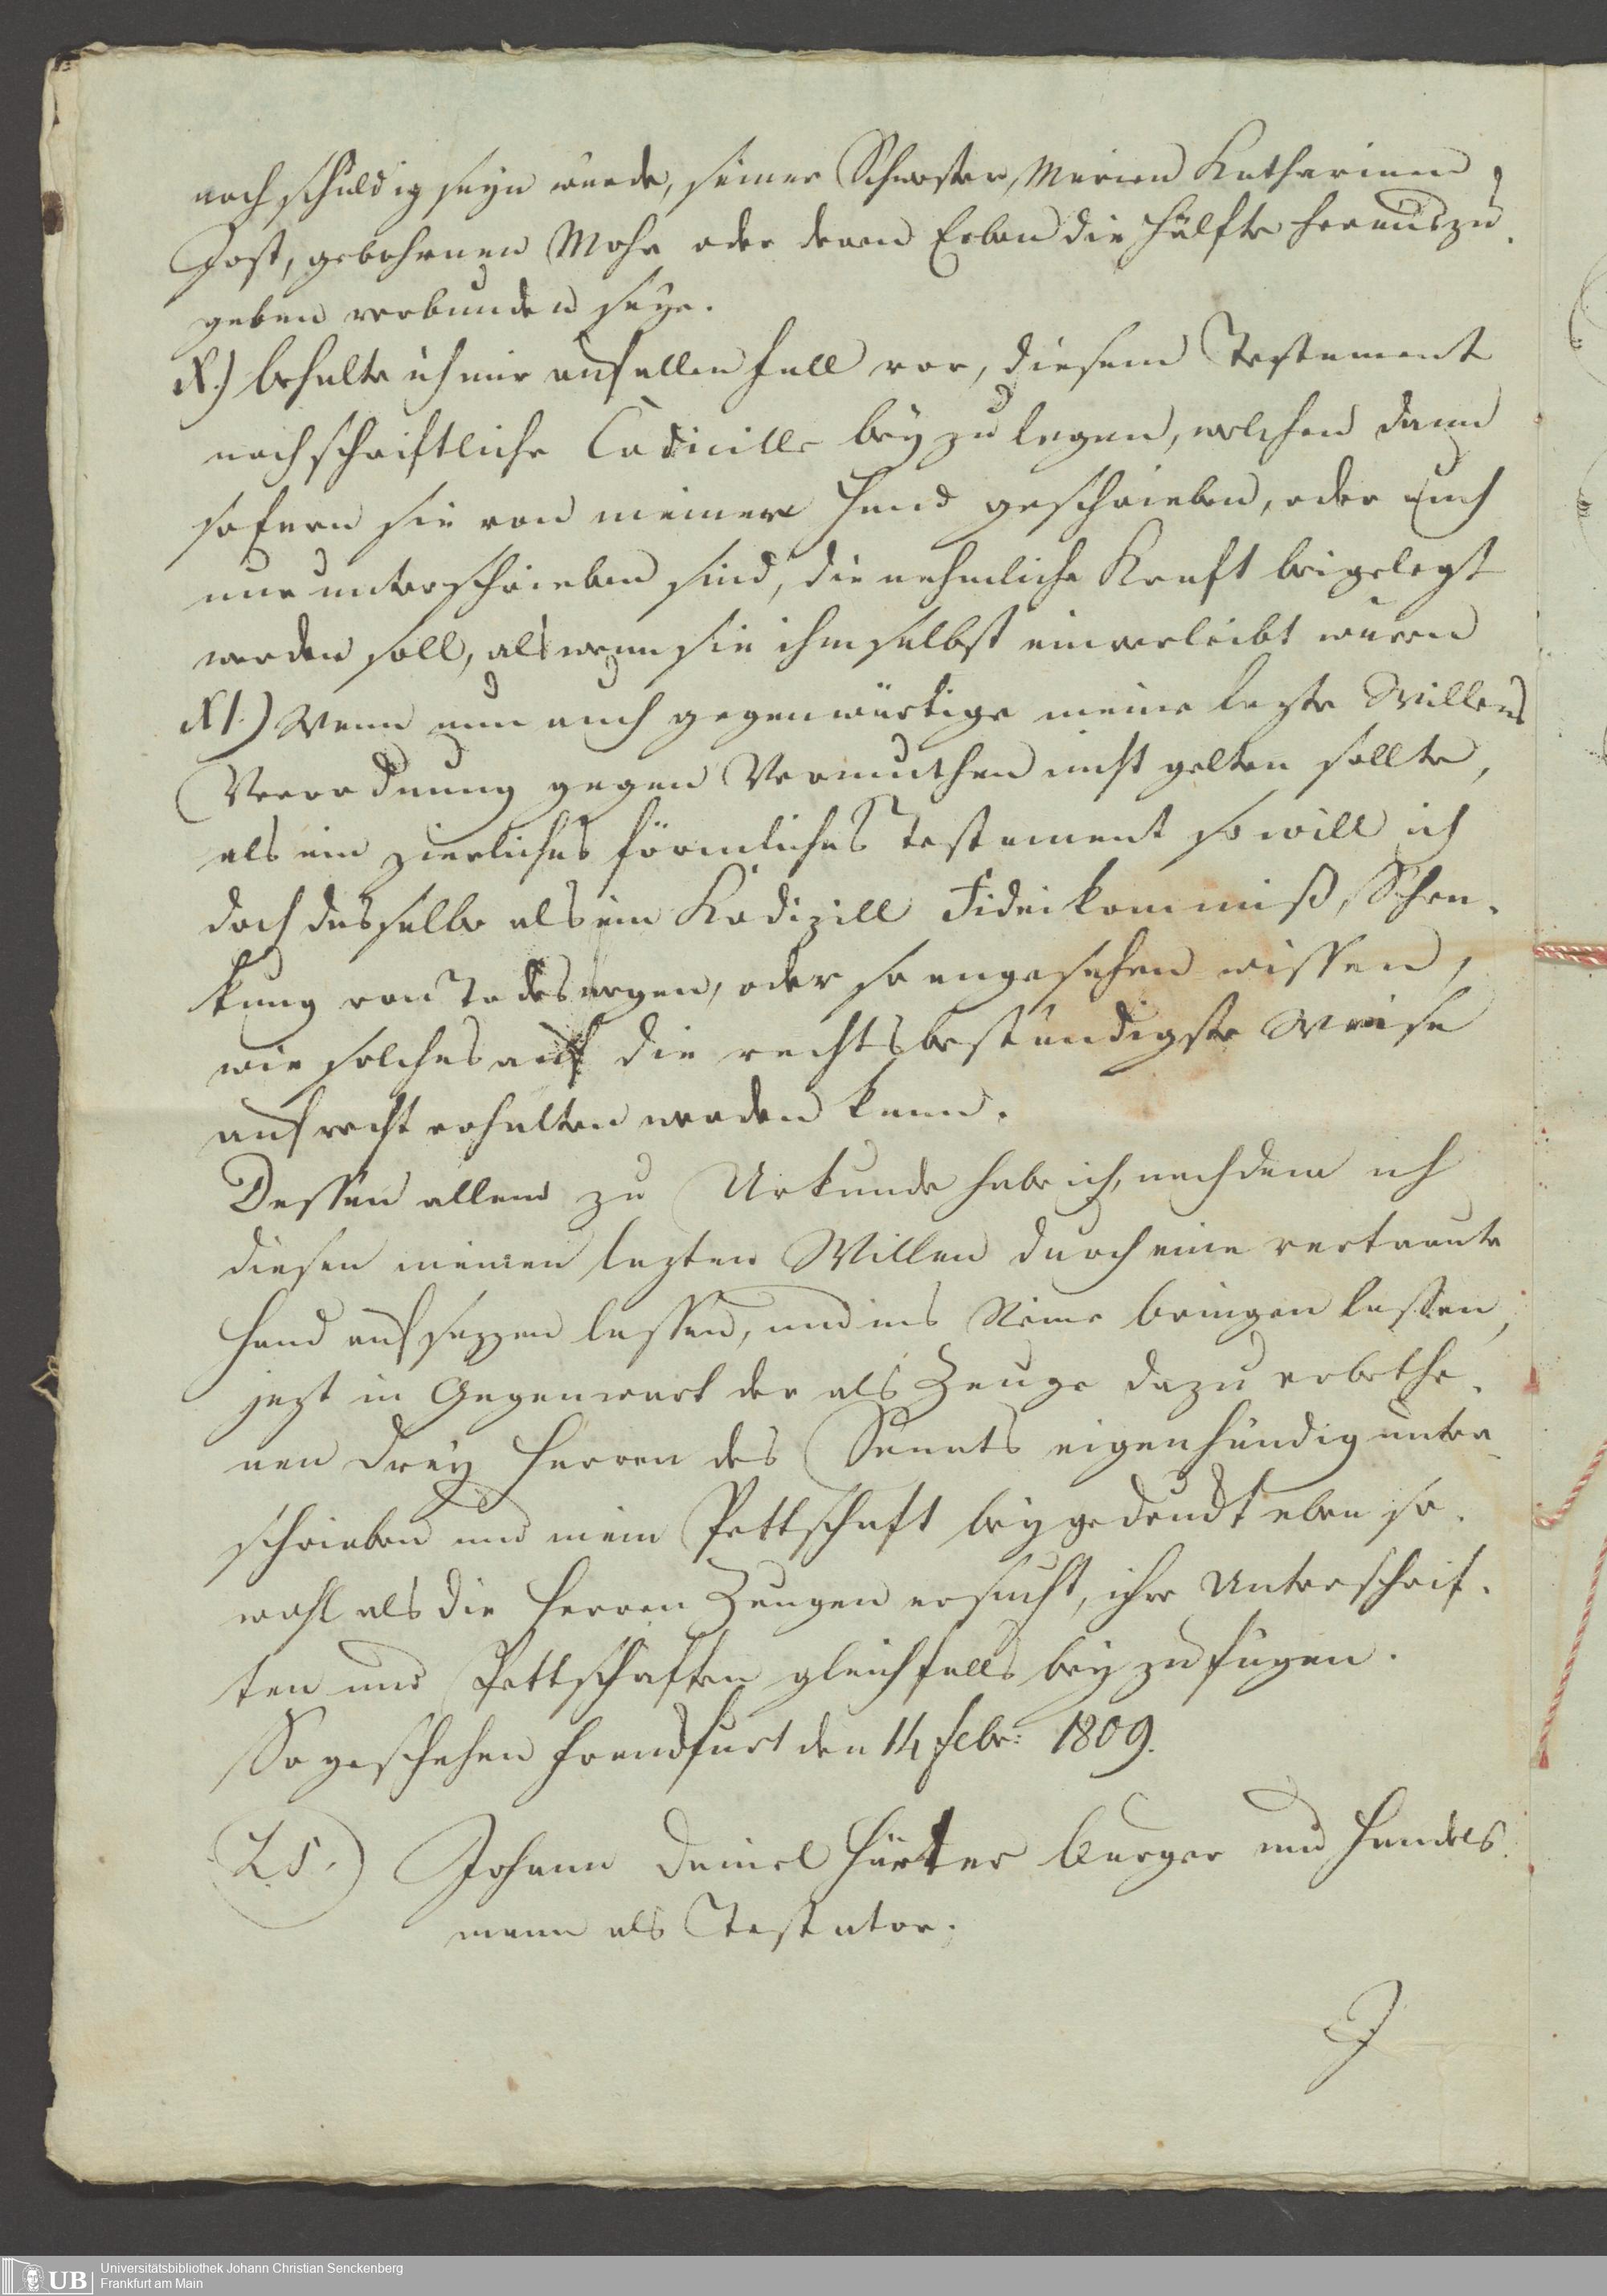 noch schuldig seyn würde, seiner Schwester, Marien Katharinen
Jost, gebohrnen Mohr oder deren Erben die Hälfte herauszu-
geben verbunden seye.
X.) behalte ich mir auf allen Fall vor, diesem Testament
noch schriftliche Codicille bey zu legen, welchen dann
sofern sie von meiner Hand geschrieben, oder auch
nur unterschrieben sind, die nehmliche Kraft beigelegt
werden soll, als wenn sie ihm selbst einverleibt wären
XI.) Wenn nun auch gegenwärtige meine lezte Willens
Verordnung gegen Vermuthen nicht gelten sollte,
als ein zierliches förmliches Testament so will ich
doch dasselbe als ein Kodizill Fideikommiß, Schen-
kung von Todeswegen, oder so angesehen wissen,
wie solches auf die rechtsbeständigste Weise
aufrecht erhalten werden kann.
Dessen allem zu Urkunde habe ich, nachdem ich
diesen meinen lezten Willen durch eine vertraute
Hand aufsezzen lassen, und ins Reine bringen lassen,
jezt in Gegenwart der als Zeuge dazu erbethe-
nen drey Herren des Senats eigenhändig unter-
schrieben und mein Pettschaft beygedruckt eben so-
wohl als die Herren Zeugen ersucht, ihre Unterschrif-
ten und Pettschaften gleichfalls bey zu fügen.
So geschehen Franckfurt den 14 febr: 1809.
L.S. Johann Daniel Härter burger und Handels-
mann als Testator.
Universitätsbibliothek Johann Christian Senckenberg
Frankfurt am Main
UB